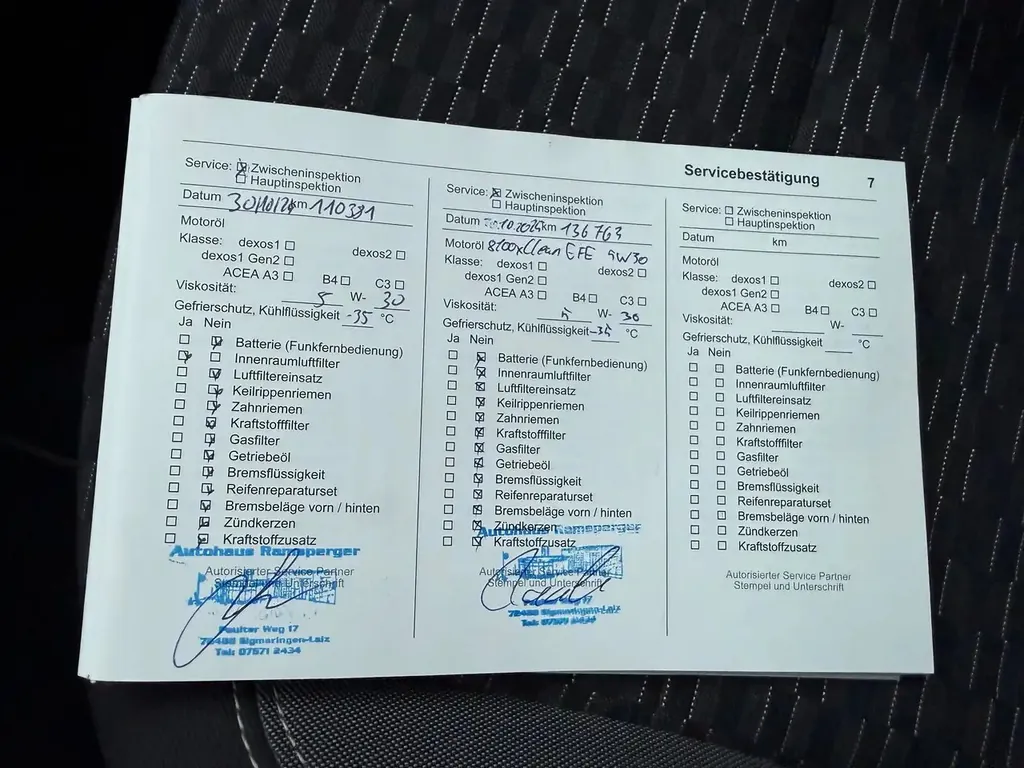 Servicebestätigung 7
Service: Zwischeninspektion
Hauptinspektion
Datum 30/10/24 km 110381
Motoröl
Klasse: dexos1
dexos2
dexos1 Gen2
ACEA A3 B4 C3
Viskosität: 5 W- 30
Gefrierschutz, Kühlflüssigkeit -35 °C
Ja Nein
Batterie (Funkfernbedienung)
Innenraumluftfilter
Luftfiltereinsatz
Keilrippenriemen
Zahnriemen
Kraftstofffilter
Gasfilter
Getriebeöl
Bremsflüssigkeit
Reifenreparaturset
Bremsbeläge vorn / hinten
Zündkerzen
Kraftstoffzusatz
Autohaus Ramsperger
Autorisierter Service Partner
Stempel und Unterschrift
Paulter Weg 17
72488 Sigmaringen-Laiz
Tel: 07571 2434
Service: Zwischeninspektion
Hauptinspektion
Datum km 136763
Motoröl 8100 xClean EFE 5W30
Klasse: dexos1
dexos2
dexos1 Gen2
ACEA A3 B4 C3
Viskosität: 5 W- 30
Gefrierschutz, Kühlflüssigkeit -35 °C
Ja Nein
Batterie (Funkfernbedienung)
Innenraumluftfilter
Luftfiltereinsatz
Keilrippenriemen
Zahnriemen
Kraftstofffilter
Gasfilter
Getriebeöl
Bremsflüssigkeit
Reifenreparaturset
Bremsbeläge vorn / hinten
Zündkerzen
Autohaus Ramsperger
Kraftstoffzusatz
Autorisierter Service Partner
Stempel und Unterschrift
72488 Sigmaringen-Laiz
Service: Zwischeninspektion
Hauptinspektion
Datum km
Motoröl
Klasse: dexos1
dexos2
dexos1 Gen2
ACEA A3 B4 C3
Viskosität: W-
Gefrierschutz, Kühlflüssigkeit °C
Ja Nein
Batterie (Funkfernbedienung)
Innenraumluftfilter
Luftfiltereinsatz
Keilrippenriemen
Zahnriemen
Kraftstofffilter
Gasfilter
Getriebeöl
Bremsflüssigkeit
Reifenreparaturset
Bremsbeläge vorn / hinten
Zündkerzen
Kraftstoffzusatz
Autorisierter Service Partner
Stempel und Unterschrift